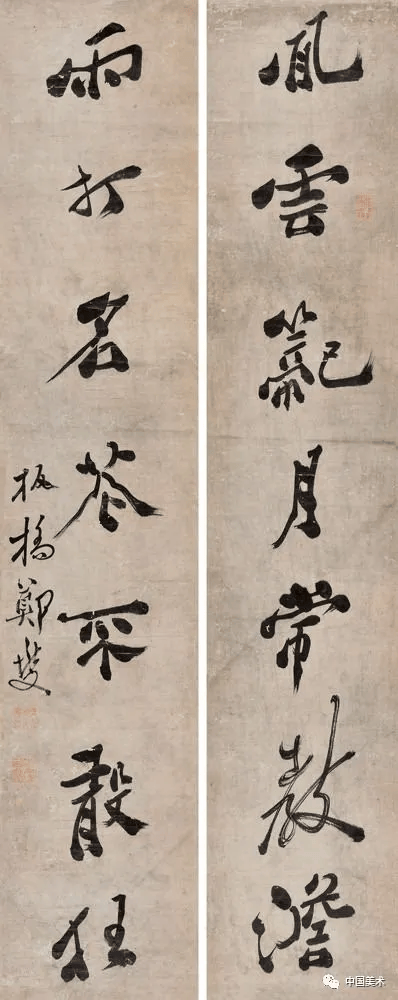 風雲籠月常教澹
雨打名花不敢狂
板橋鄭燮
中国美术